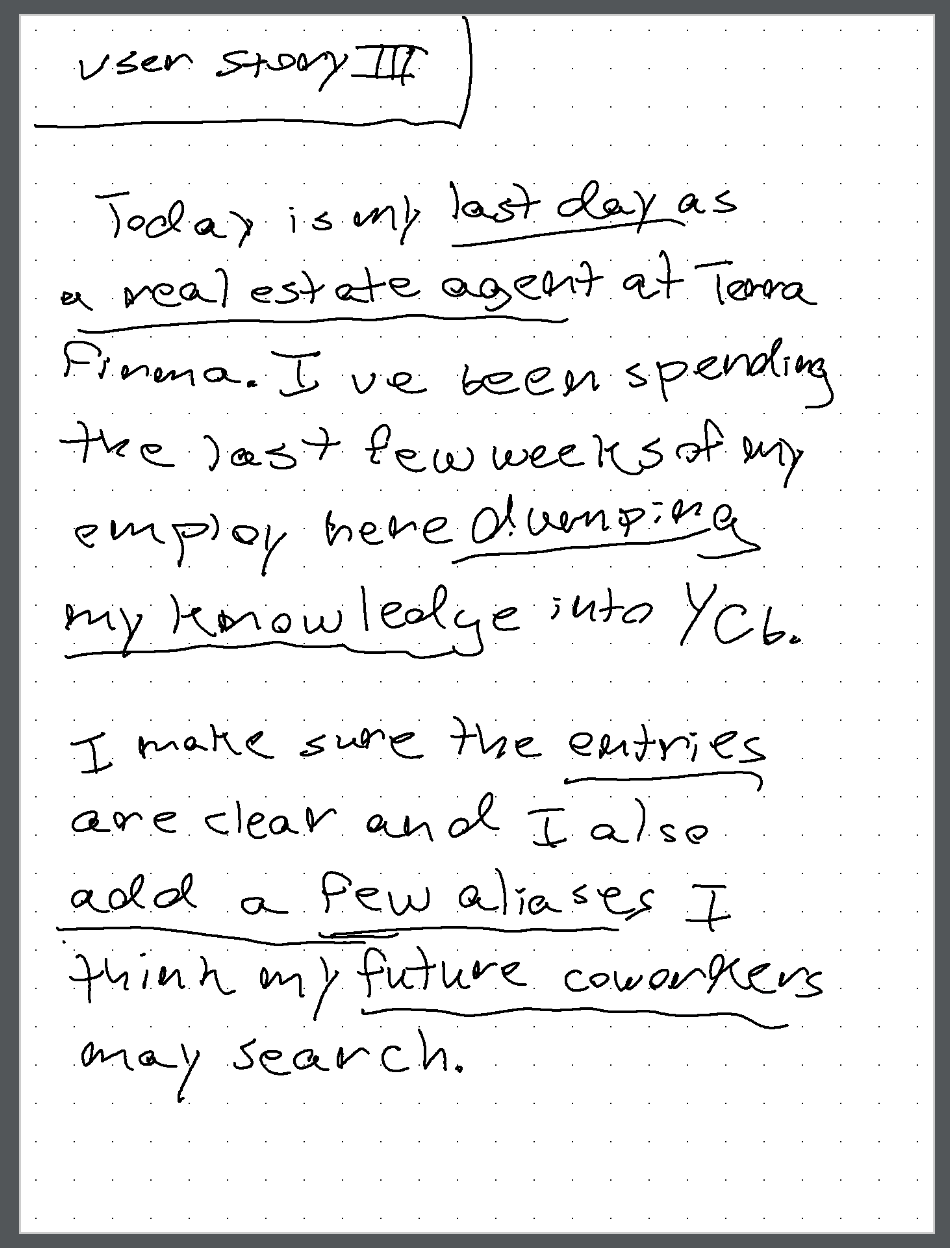 User Story III
Today is my last day as
a real estate agent at Terra
Firma. I ve been spending
the last few weeks of my
employ here dumping
my knowledge into YCb.
I make sure the entries
are clear and I also
add a few aliases I
think my future coworkers
may search.